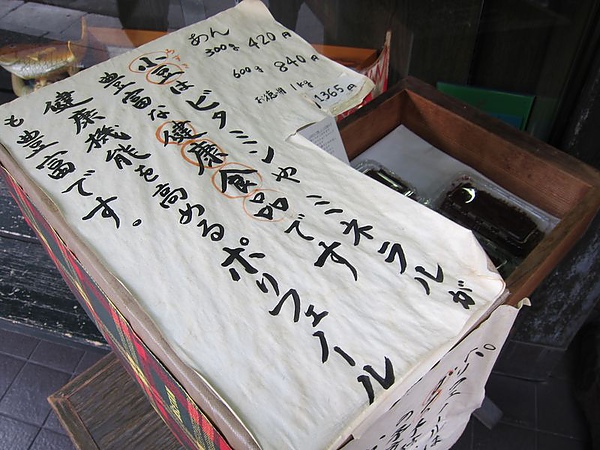 あん
300g 420円
600g 840円
お徳用 1kg 1365円
小豆はビタミンやミネラルが
豊富な健康食品です
健康機能を高めるポリフェノール
も豊富です。